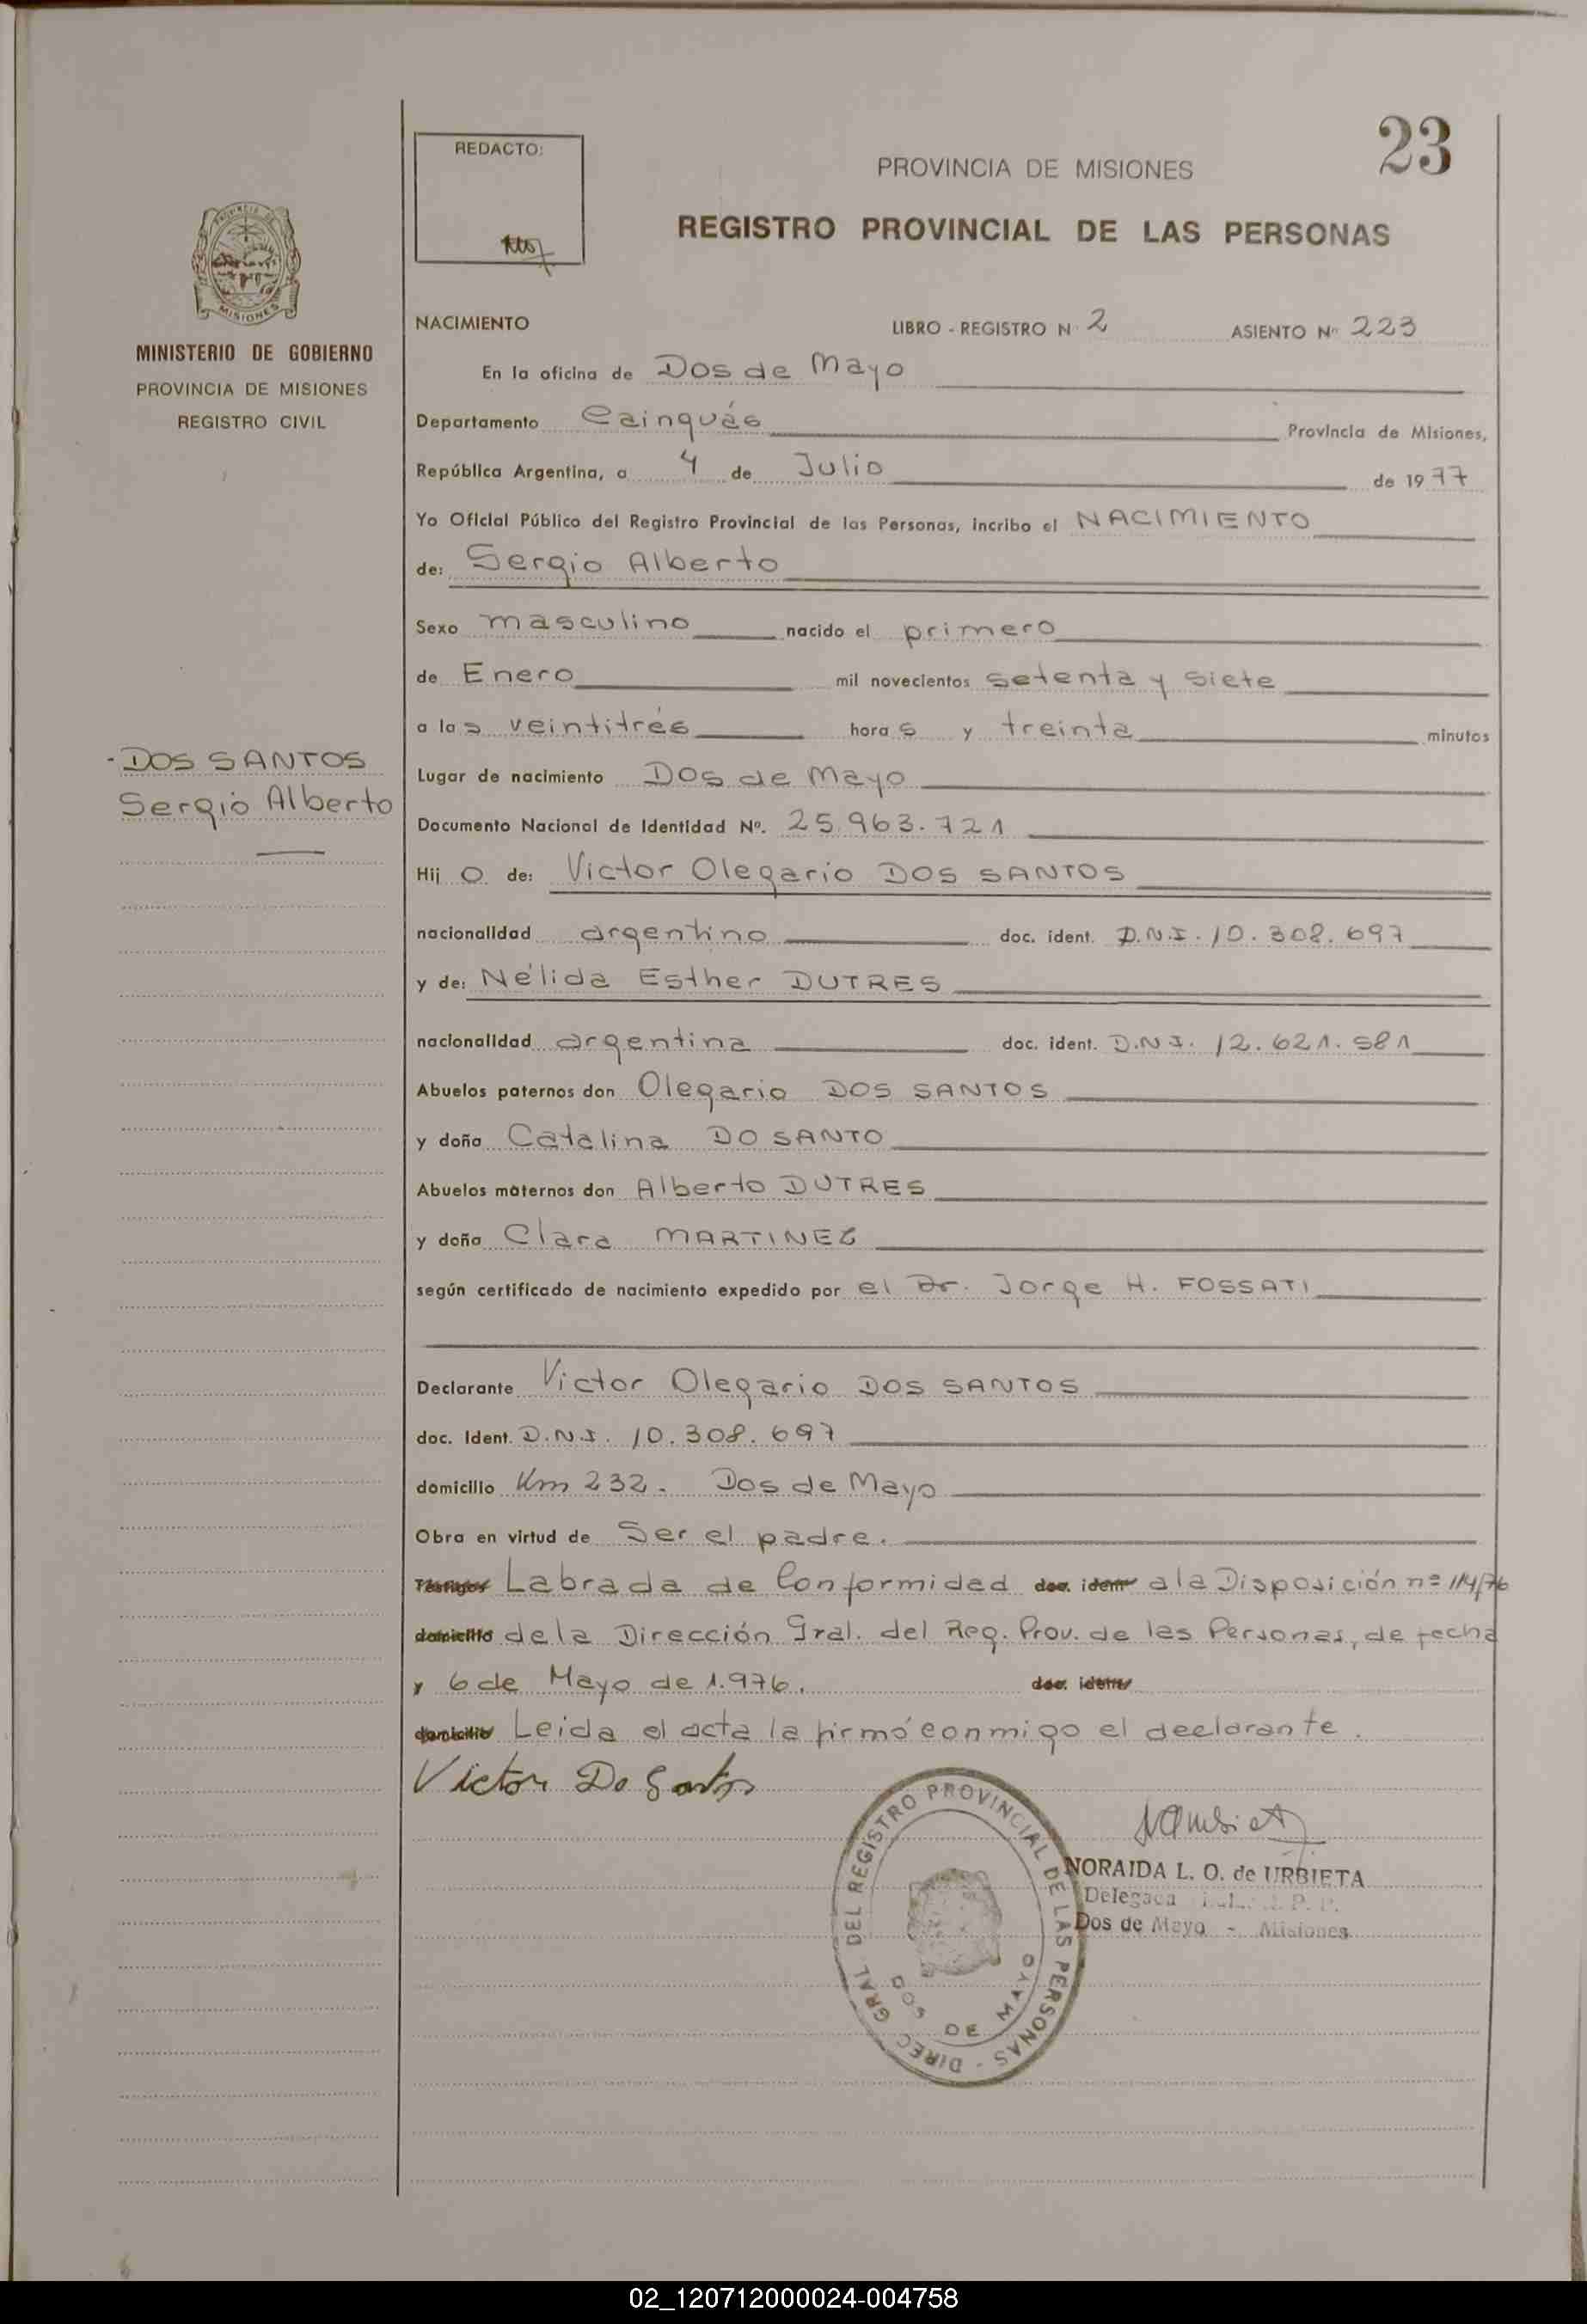 23
REDACTO:
PROVINCIA DE MISIONES
REGISTRO PROVINCIAL DE LAS PERSONAS
PROVINCIA DE
MISIONES
MINISTERIO DE GOBIERNO
PROVINCIA DE MISIONES
REGISTRO CIVIL
NACIMIENTO LIBRO - REGISTRO Nº 2 ASIENTO Nº 223
En la oficina de Dos de Mayo
Departamento Cainguás Provincia de Misiones,
República Argentina, a 4 de Julio de 1977
Yo Oficial Público del Registro Provincial de las Personas, incribo el NACIMIENTO
de: Sergio Alberto
Sexo masculino nacido el primero
de Enero mil novecientos setenta y siete
a las veintitrés horas y treinta minutos
- DOS SANTOS
Sergio Alberto
Lugar de nacimiento Dos de Mayo
Documento Nacional de Identidad Nº. 25.963.721
Hijo de: Victor Olegario DOS SANTOS
nacionalidad argentino doc. ident. D.N.I. 10.308.697
y de: Nélida Esther DUTRES
nacionalidad argentina doc. ident. D.N.I. 12.621.581
Abuelos paternos don Olegario DOS SANTOS
y doña Catalina DO SANTO
Abuelos maternos don Alberto DUTRES
y doña Clara MARTINEZ
según certificado de nacimiento expedido por el Dr. Jorge H. FOSSATI
Declarante Victor Olegario DOS SANTOS
doc. Ident. D.N.I. 10.308.697
domicilio Km 232. Dos de Mayo
Obra en virtud de Ser el padre.
Testigos Labrada de Conformidad doc. ident a la Disposición nº 114/76
domicilio de la Dirección Gral. del Reg. Prov. de las Personas, de fecha
y 6 de Mayo de 1.976. doc. ident
domicilio Leida el acta la firmó conmigo el declarante.
Victor Do Santos
DIREC. GRAL. DEL REGISTRO PROVINCIAL DE LAS PERSONAS -
DOS DE MAYO
NORAIDA L. O. de URBIETA
Delegada
Dos de Mayo - Misiones
02_120712000024-004758